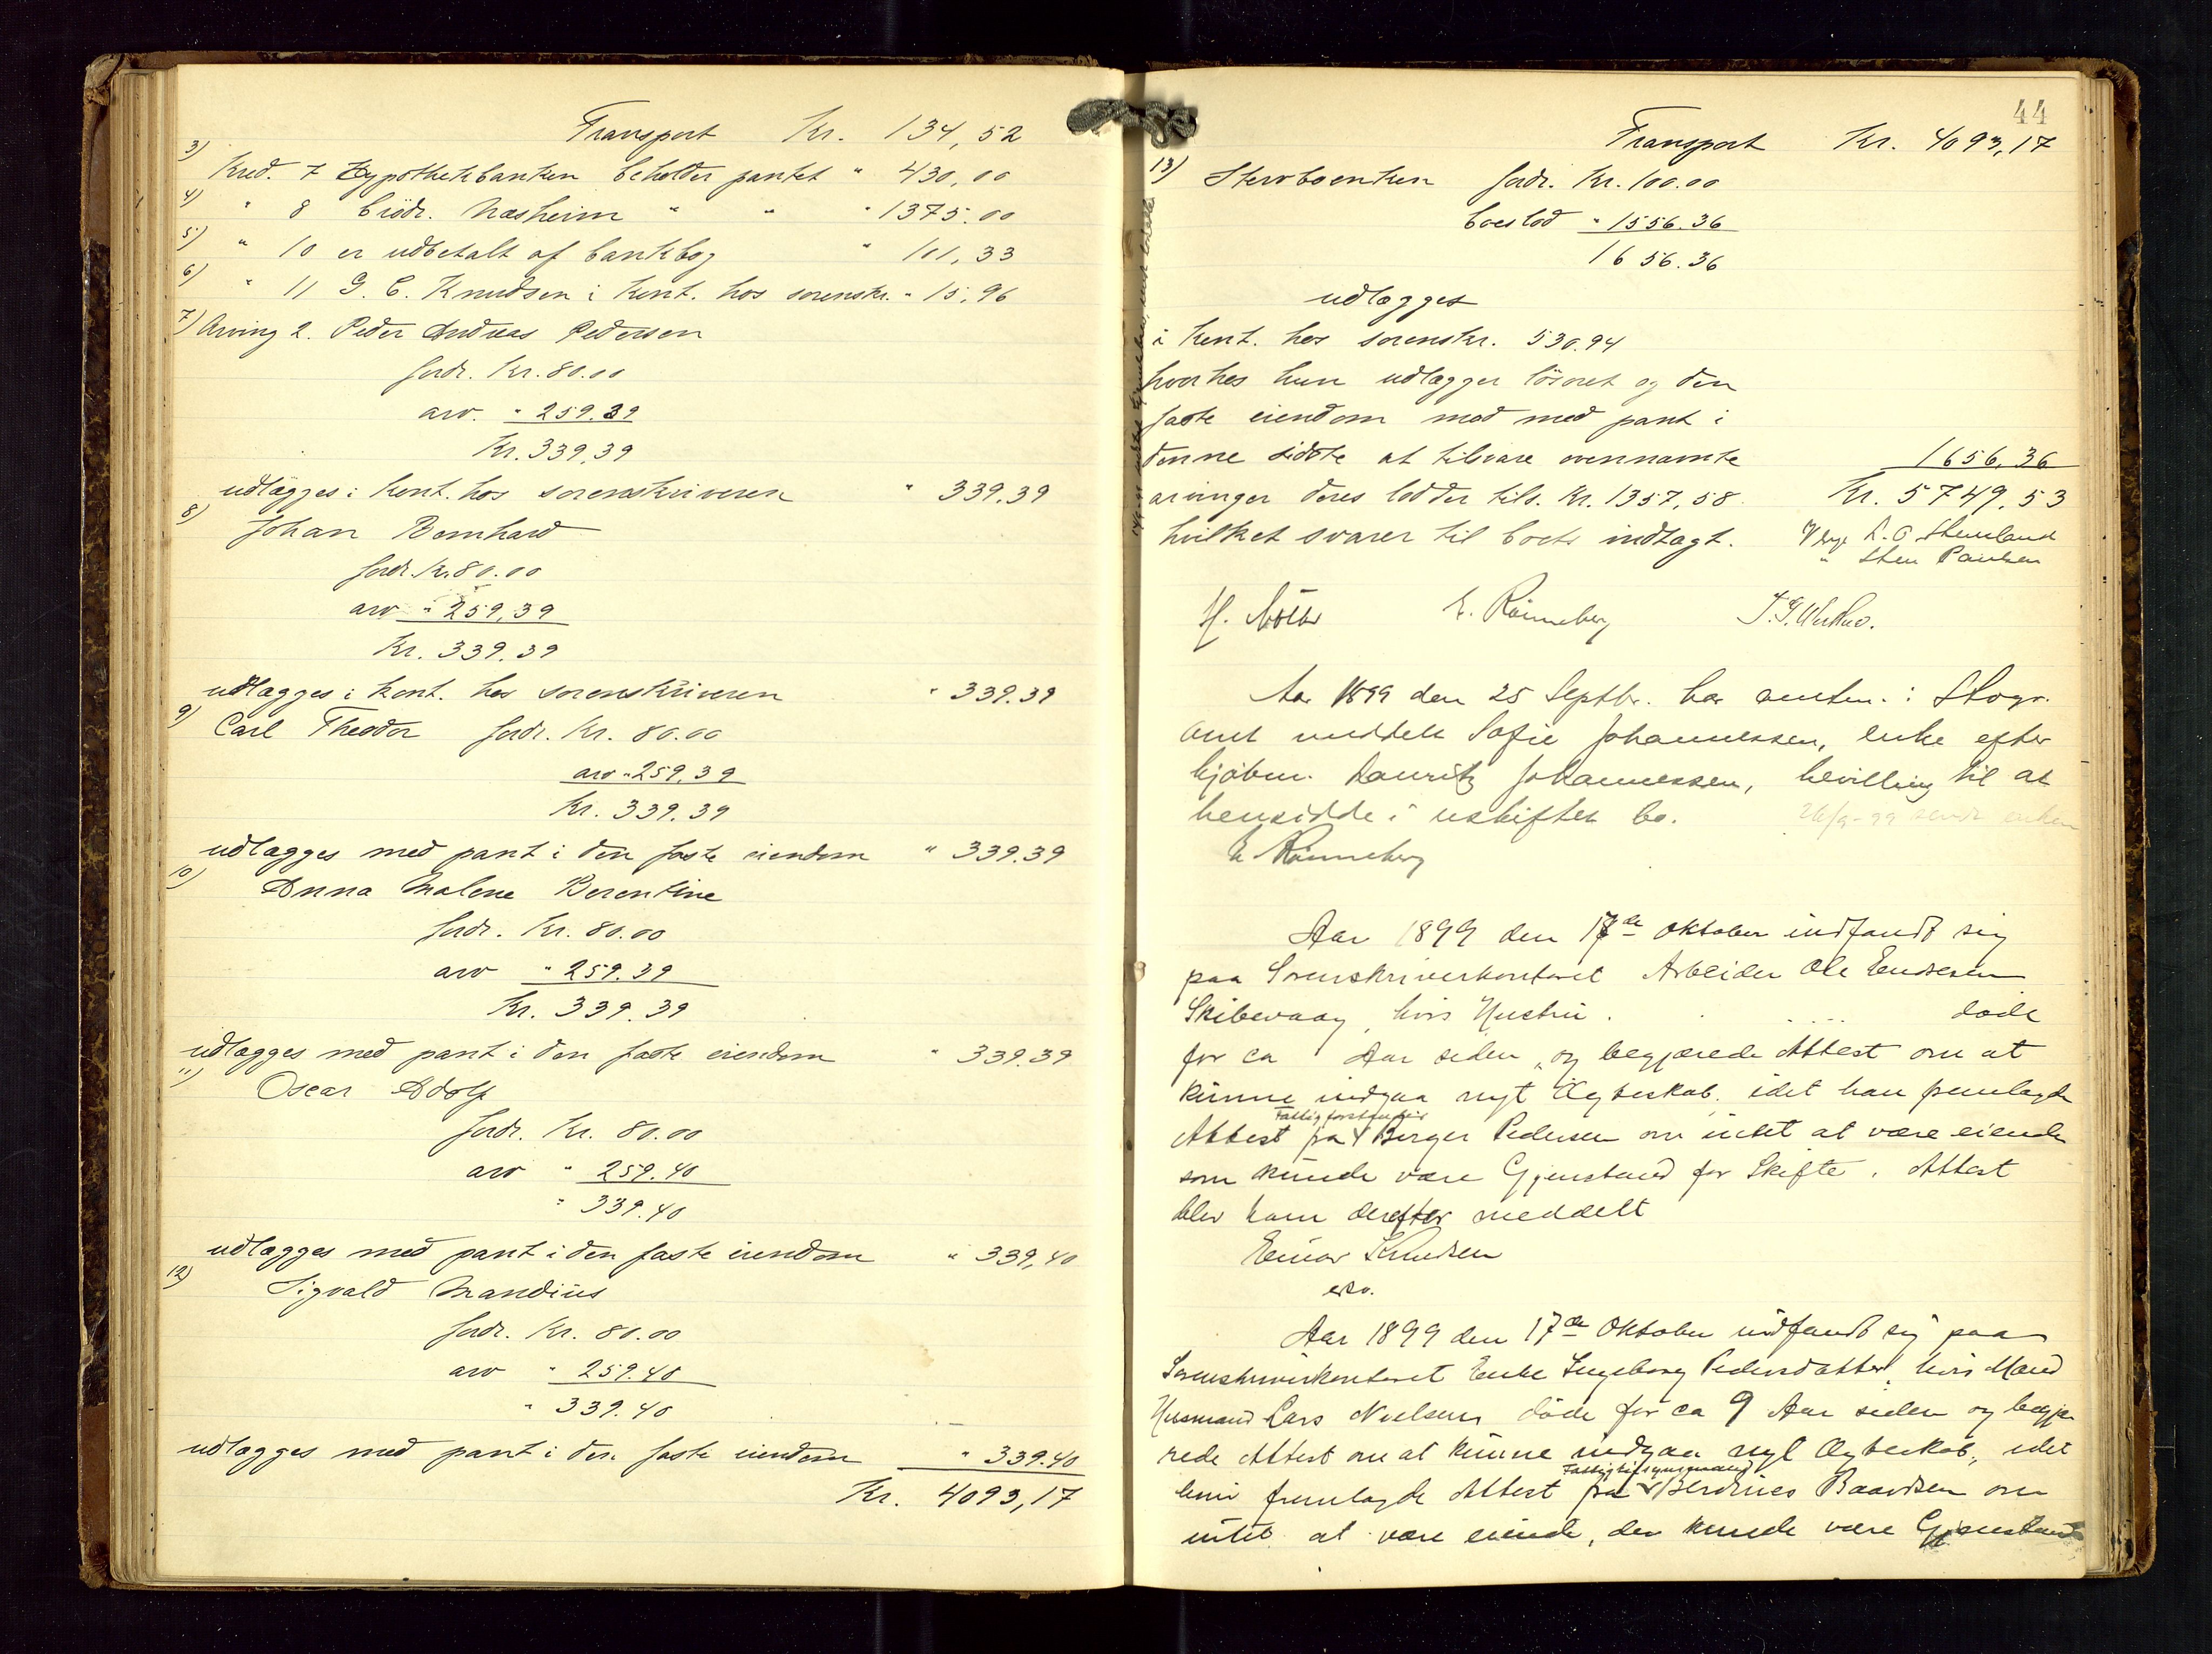 Transport Kr. 134,52
3) Kred. 7 Hypothekbanken beholder pantet " 430,00
4) " 8 brödr. Næsheim " " " 1375.00
5) " 10 er udbetalt af bankbog " 101,33
6) " 11 G. C. Knudsen i kont. hos sorenskr. " 15,96
7) Arving 2. Peder Andreas Pedersen
fordr. Kr. 80.00
arv. " 259.39
Kr. 339,39
udlægges i kont. hos sorenskriveren " 339.39
8) Johan Bernhard
fordr. Kr. 80.00
arv " 259,39
Kr. 339.39
udlægges i kont. hos sorenskriveren " 339.39
9) Carl Theodor fordr. Kr. 80.00
arv " 259.39
Kr. 339.39
udlægges med pant i den faste eiendom " 339.39
10) Anna Malene Berentine
fordr. Kr. 80.00
arv " 259.39
Kr. 339.39
udlægges med pant i den faste eiendom " 339.39
11) Oscar Adolf
fordr. Kr. 80.00
arv " 259.40
" 339.40
udlægges med pant i den faste eiendom " 339,40
12) Sigvald Mandius
fordr. Kr. 80.00
arv " 259.40
" 339.40
udlægges med pant i den faste eiendom " 339.40
Kr. 4093,17
44
Transport Kr. 4093,17
13) Stervboenken fordr. Kr. 100.00
boeslod " 1556.36
1656.36
udlægges
i kont. hos sorenskr. 530.94
hvorhos hun udlægger lösöret og den
faste eiendom mod med pant i
denne sidste at tilsvare ovennævnte 1656,36
arvinger deres lodder tils. Kr. 1357,58. Kr. 5749,53
hvilket svarer til boets indtægt. Verge
" Sten Paulsen
E. Rönneberg
Aar 1899 den 25 Septbr. har amtm. i Stavgr.
amt meddelt Sofie Johannessen, enke efter
kjöbm. Lauritz Johannessen, bevilling til at
hensidde i uskiftet bo. 26/9-99 sendt enken
E Rönneberg
Aar 1899 den 17de Oktober indfandt sig
paa Sorenskriverkontoret Arbeider Ole Endresen
Skibevaag, hvis Hustru . . . . . döde
for ca Aar siden, og begjærede Attest om at
kunne indgaa nyt Ægteskab, idet han fremlagde
Fattigforstander
Attest fra Berger Pedersen om intet at være eiende
som kunde være Gjenstand for Skifte. Attest
blev ham derefter meddelt
Einar Knudsen
eo.
Aar 1899 den 17de Oktober indfandt sig paa
Sorenskriverkontoret Enke Ingeborg Pedersdatter, hvis Mand
Husmand Lars Nielsen döde for ca 9 Aar siden og begjæ
rede Attest om at kunne indgaa nyt Ægteskab, idet
Fattigtilsynsmand
hun fremlagde Attest fra Berdines Baardsen om
intet at være eiende, der kunde være Gjenstand